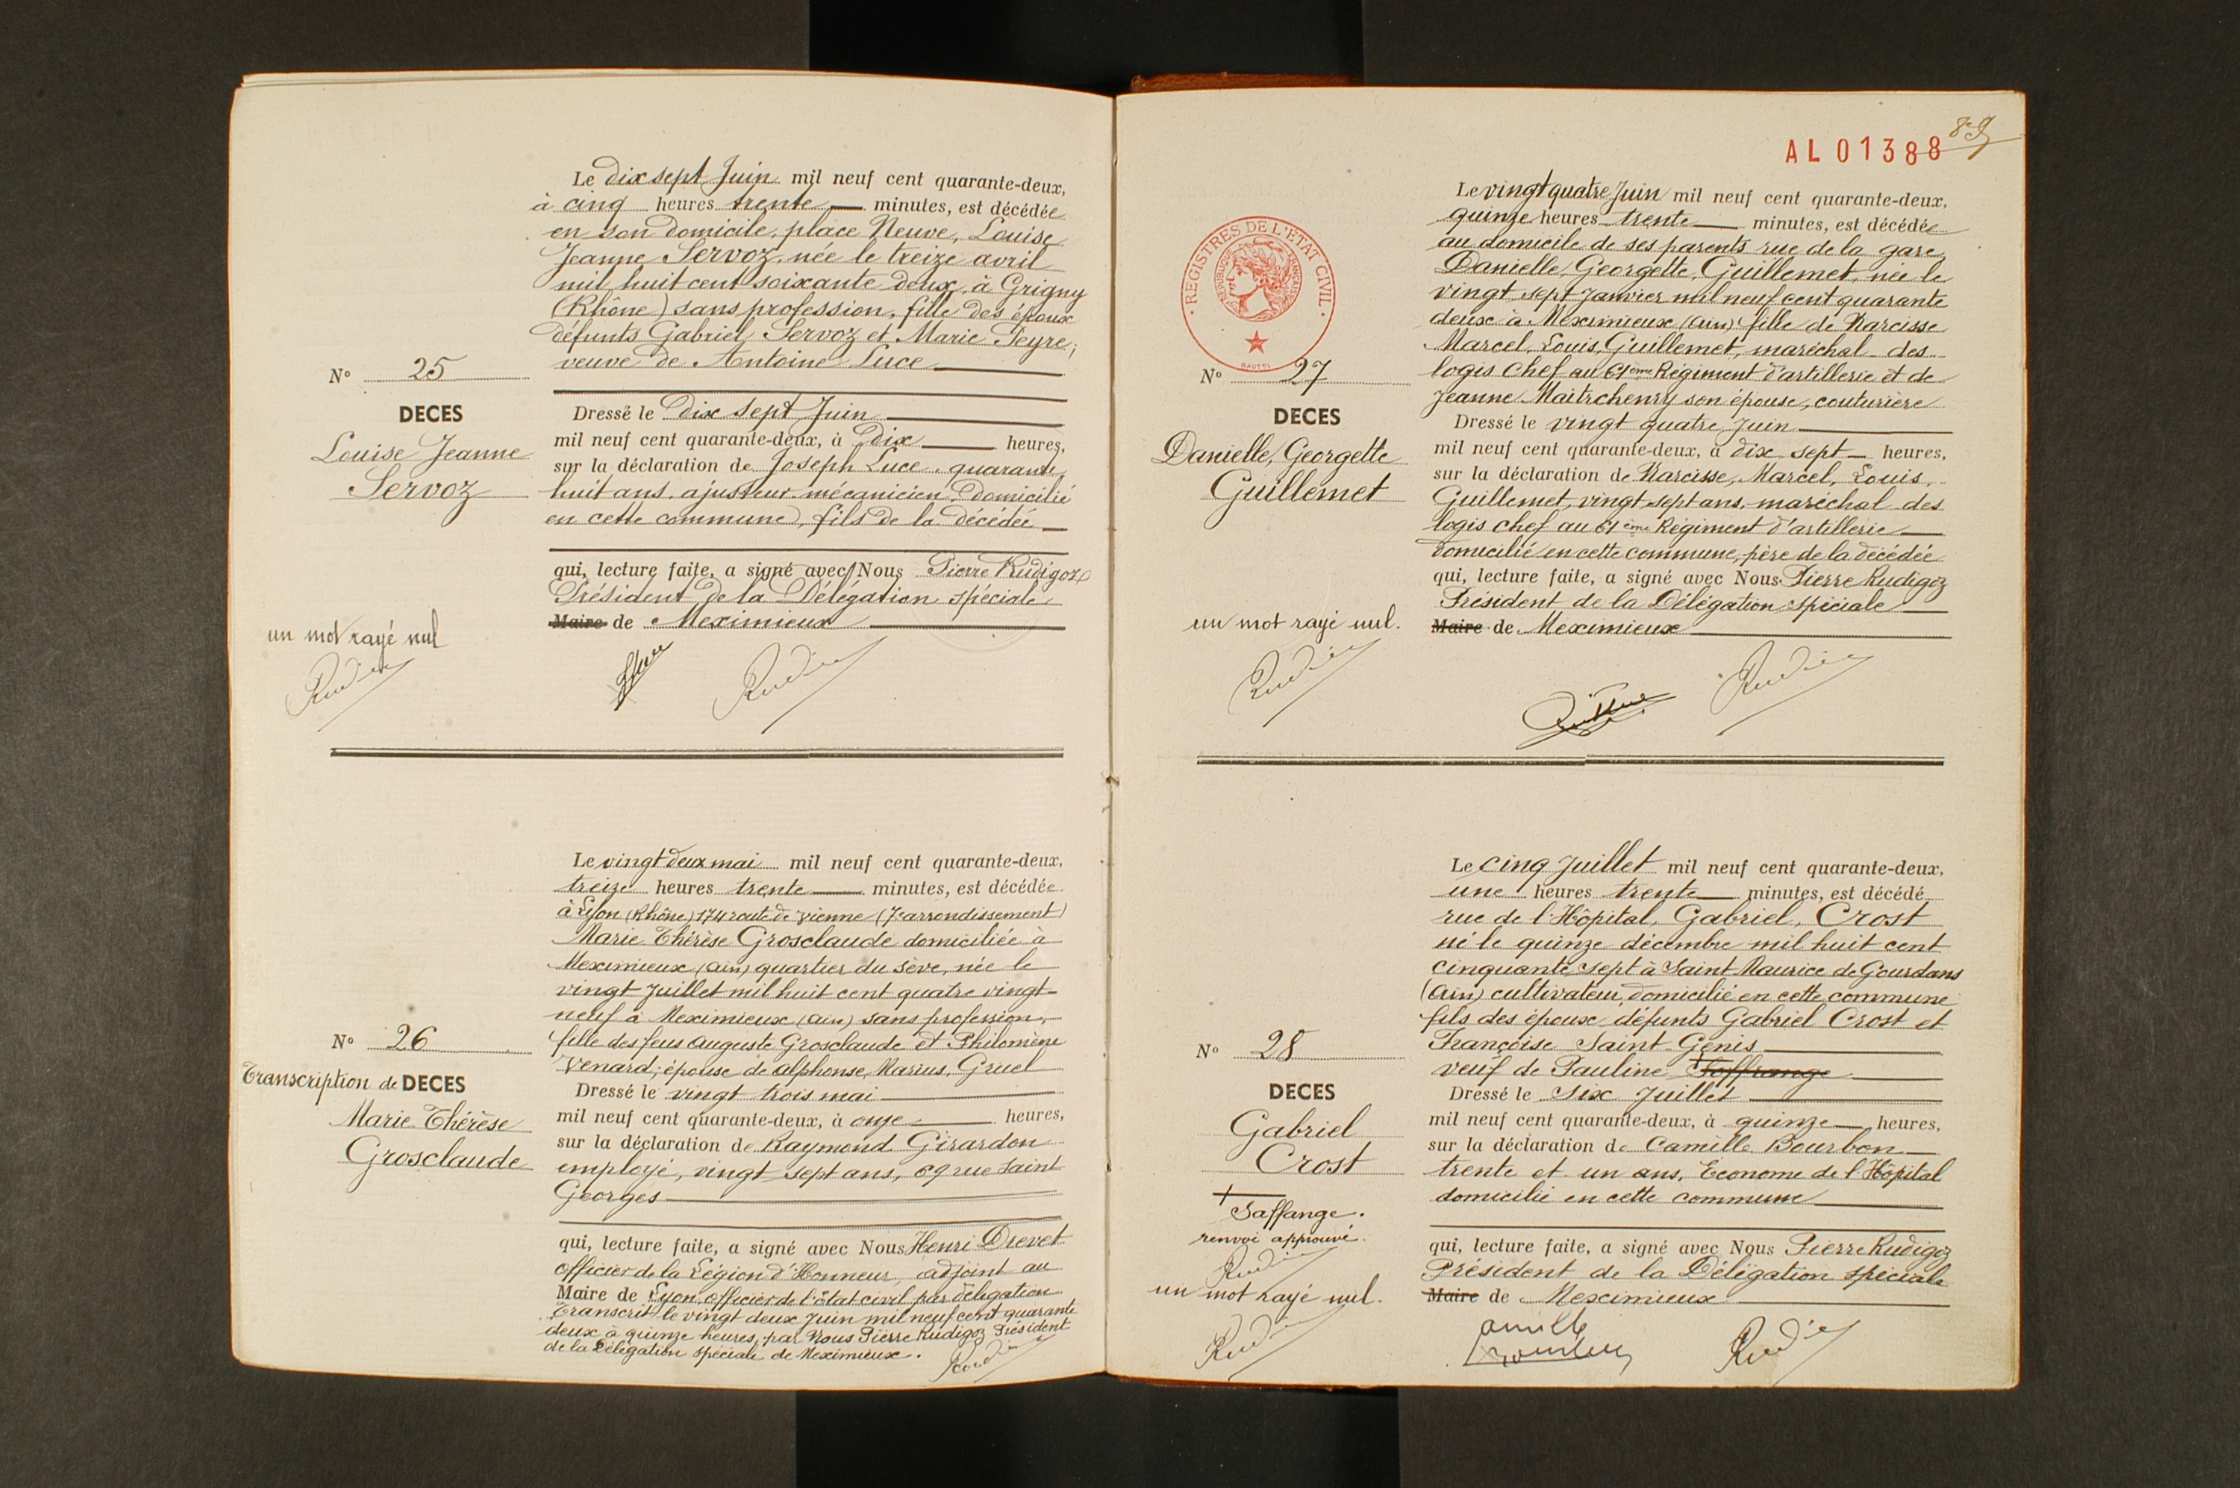 Le dix sept Juin mil neuf cent quarante-deux,
à cinq heures trente minutes, est décédée
en son domicile, place Neuve, Louise
Jeanne Servoz, née le treize avril
mil huit cent soixante deux, à Grigny
(Rhône) sans profession, fille des époux
défunts Gabriel Servoz et Marie Peyre;
veuve de Antoine Luce
N° 25
DECES
Louise Jeanne
Servoz
Dressé le Dix sept Juin
mil neuf cent quarante-deux, à Dix heures,
sur la déclaration de Joseph Luce, quarante
huit ans, ajusteur-mécanicien, domicilié
en cette commune, fils de la décédée
qui, lecture faite, a signé avec Nous Pierre Rudigoz
Président de la Délégation spéciale
Maire de Meximieux
un mot rayé nul
Le vingt deux mai mil neuf cent quarante-deux,
treize heures trente minutes, est décédée
à Lyon (Rhône) 174 route de Vienne (7e arrondissement)
Marie Thérèse Grosclaude domiciliée à
Meximieux (Ain) quartier du sève, née le
vingt Juillet mil huit cent quatre vingt-
neuf à Meximieux (Ain) sans profession,
fille des feus Auguste Grosclaude et Philomène
Venard; épouse de Alphonse, Marius, Gruel
N° 26
Transcription de DECES
Marie Thérèse
Grosclaude
Dressé le vingt trois mai
mil neuf cent quarante-deux, à onze heures,
sur la déclaration de Raymond Girardon
employé, vingt sept ans, 69 rue Saint
Georges
qui, lecture faite, a signé avec Nous Henri Drevet
officier de la Légion d'Honneur, adjoint au
Maire de Lyon, officier de l'état civil par délégation
Transcrit le vingt deux Juin mil neuf cent quarante
deux à quinze heures, par Nous Pierre Rudigoz Président
de la Délégation spéciale de Meximieux.
AL 01388
89
REGISTRES DE L'ETAT CIVIL
Le vingt quatre Juin mil neuf cent quarante-deux,
quinze heures trente minutes, est décédée
au domicile de ses parents rue de la gare
Danielle, Georgette, Guillemet, née le
vingt sept Janvier mil neuf cent quarante
deux à Meximieux (Ain) fille de Narcisse
Marcel, Louis, Guillemet, maréchal des
logis Chef au 61ème Régiment d'artillerie et de
Jeanne Maitrchenry son épouse, couturière
N° 27
DECES
Danielle, Georgette
Guillemet
Dressé le vingt quatre Juin
mil neuf cent quarante-deux, à dix sept heures,
sur la déclaration de Narcisse, Marcel, Louis,
Guillemet, vingt sept ans, maréchal des
logis Chef au 61ème Régiment d'artillerie
domicilié en cette commune, père de la décédée
qui, lecture faite, a signé avec Nous Pierre Rudigoz
Président de la Délégation spéciale
Maire de Meximieux
un mot rayé nul.
Le cinq Juillet mil neuf cent quarante-deux,
une heures trente minutes, est décédé
rue de l'Hôpital, Gabriel, Crost
né le quinze décembre mil huit cent
cinquante sept à Saint Maurice de Gourdans
(Ain) cultivateur, domicilié en cette commune
fils des époux défunts Gabriel Crost et
Françoise Saint-Genis
veuf de Pauline
N° 28
DECES
Gabriel
Crost
Dressé le Six Juillet
mil neuf cent quarante-deux, à quinze heures,
sur la déclaration de Camille Bourbon
trente et un ans, Econome de l'Hôpital
domicilié en cette commune
Saffange.
renvoi approuvé.
un mot rayé nul.
qui, lecture faite, a signé avec Nous Pierre Rudigoz
Président de la Délégation spéciale
Maire de Meximieux